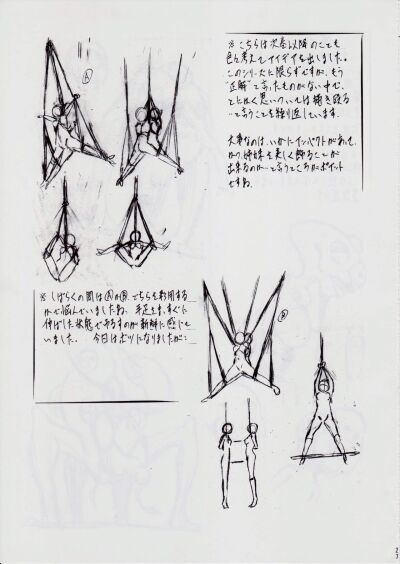 ※ こちらは次巻以降のことも
色々考えてアイデアを出しました。
このシリーズに限らずですが、もう
"正解"と言ったものがない中で、
とにかく思いついては線を
と言うことを繰り返しています。
大事なのは、いかにインパクトがあって、
かつ 姉妹を美しく飾ることが
出来るのか…と言うところがポイント
ですね。
Ⓐ
※ しばらくの間はⒶかⒷ、どちらを利用する
かで悩んでいましたね。手足をまっすぐに
伸ばした状態で吊るすのが新鮮に感じて
いました。 今日はボツになりましたが…
Ⓑ
23